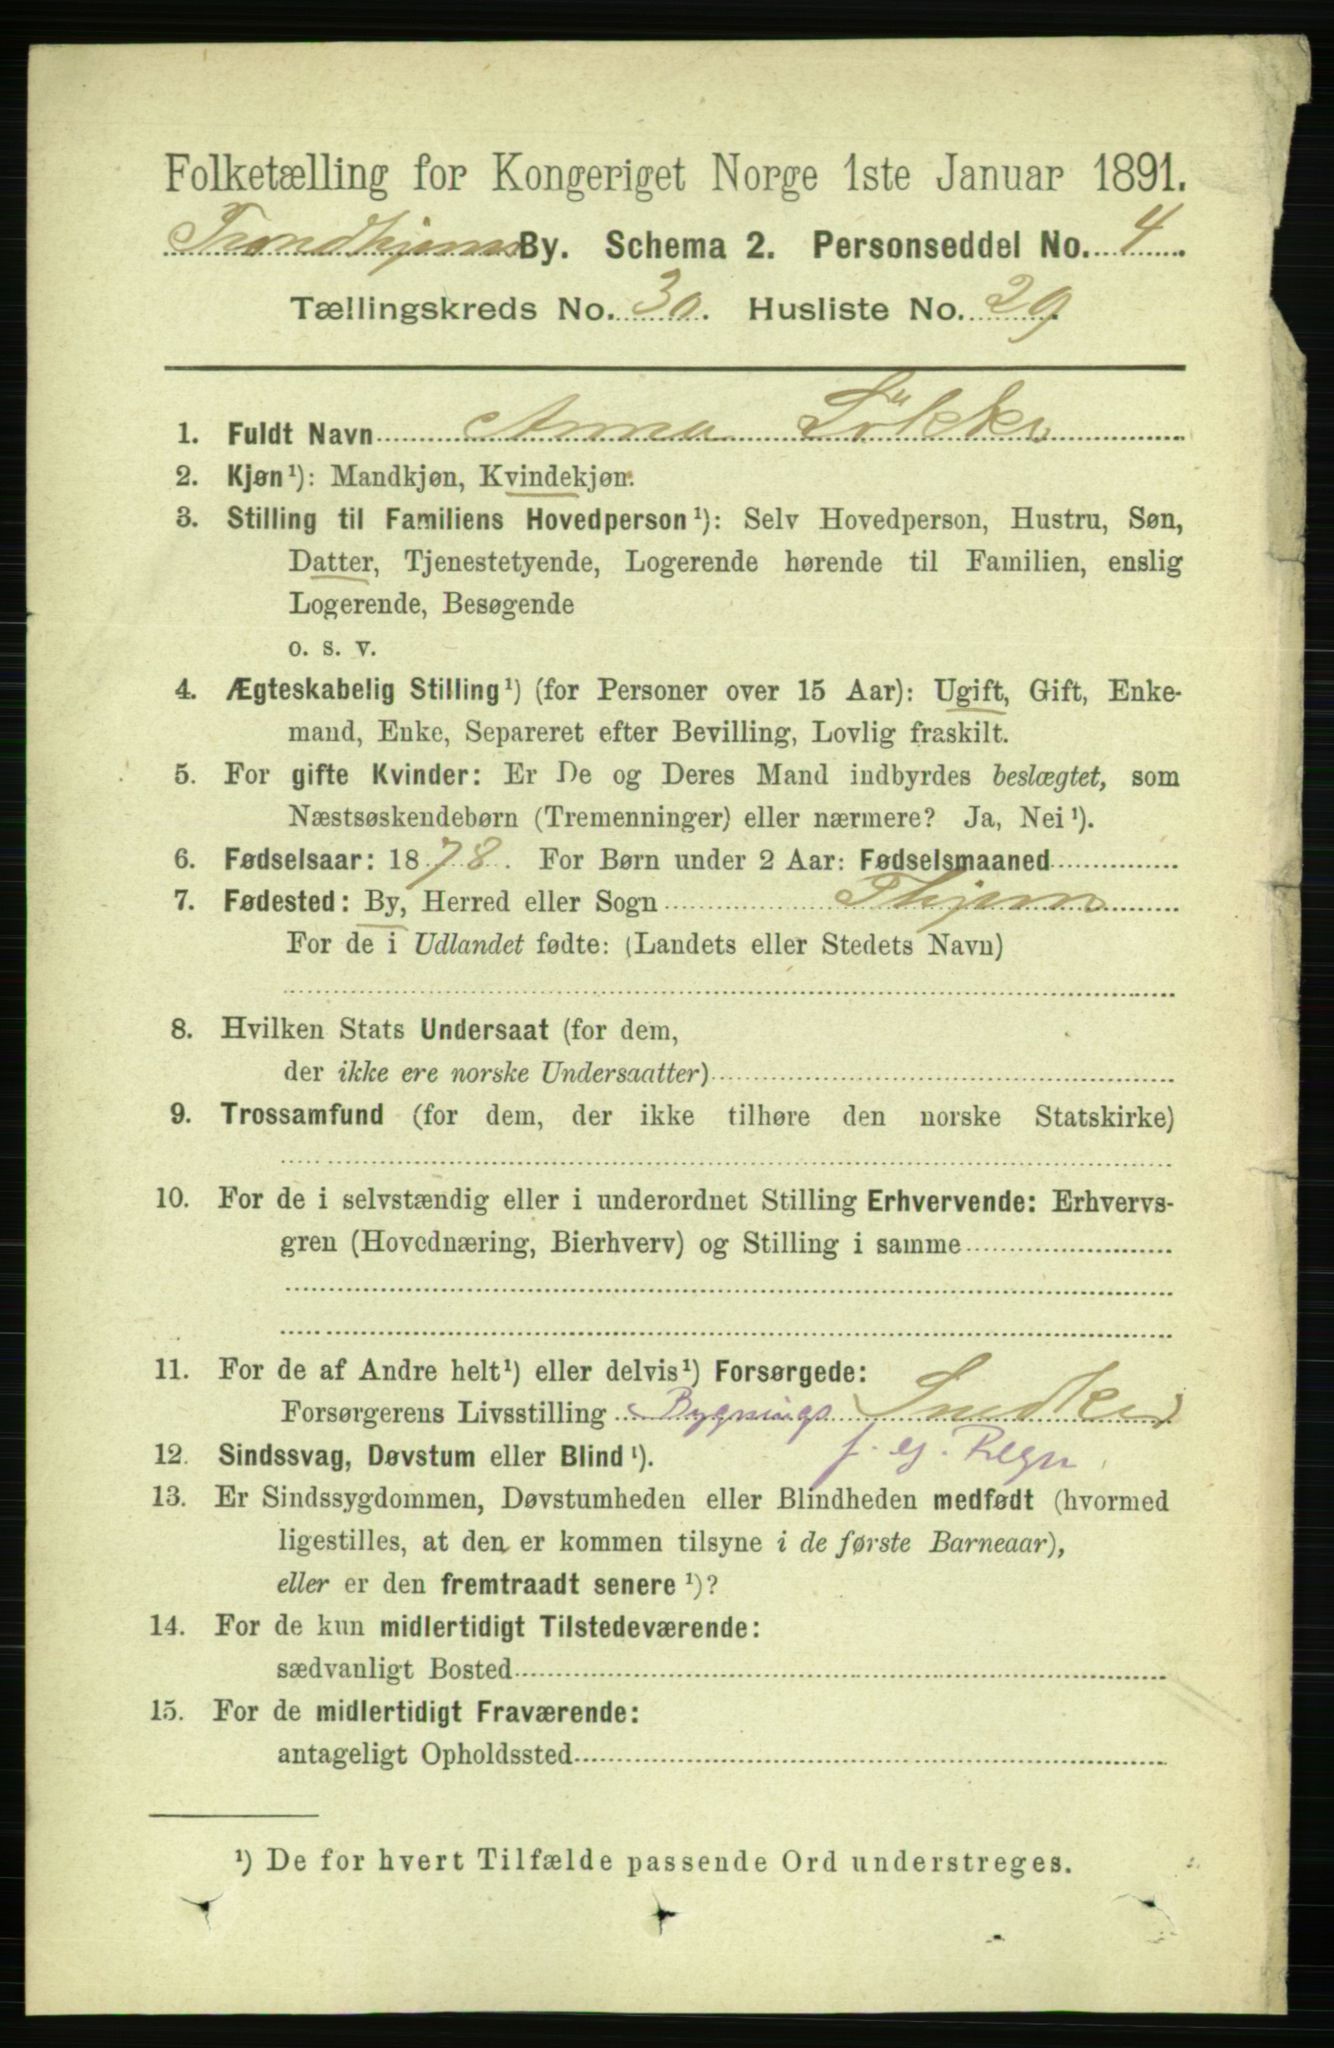 Folketælling for Kongeriget Norge 1ste Januar 1891.
Trondhjems By. Schema 2. Personseddel No. 4
Tællingskreds No. 30. Husliste No. 29
1. Fuldt Navn Anna Løkke
2. Kjøn¹): Mandkjøn, Kvindekjøn.
3. Stilling til Familiens Hovedperson¹): Selv Hovedperson, Hustru, Søn,
Datter, Tjenestetyende, Logerende hørende til Familien, enslig
Logerende, Besøgende
o. s. v.
4. Ægteskabelig Stilling¹) (for Personer over 15 Aar): Ugift, Gift, Enke-
mand, Enke, Separeret efter Bevilling, Lovlig fraskilt.
5. For gifte Kvinder: Er De og Deres Mand indbyrdes beslægtet, som
Næstsøskendebørn (Tremenninger) eller nærmere? Ja, Nei¹).
6. Fødselsaar: 1878. For Børn under 2 Aar: Fødselsmaaned
7. Fødested: By, Herred eller Sogn Thjem
For de i Udlandet fødte: (Landets eller Stedets Navn)
8. Hvilken Stats Undersaat (for dem,
der ikke ere norske Undersaatter)
9. Trossamfund (for dem, der ikke tilhøre den norske Statskirke)
10. For de i selvstændig eller i underordnet Stilling Erhvervende: Erhvervs-
gren (Hovednæring, Bierhverv) og Stilling i samme
11. For de af Andre helt¹) eller delvis¹) Forsørgede:
Forsørgerens Livsstilling Bygnings Snedker
f. eg. Regn
12. Sindssvag, Døvstum eller Blind¹).
13. Er Sindssygdommen, Døvstumheden eller Blindheden medfødt (hvormed
ligestilles, at den er kommen tilsyne i de første Barneaar),
eller er den fremtraadt senere¹)?
14. For de kun midlertidigt Tilstedeværende:
sædvanligt Bosted
15. For de midlertidigt Fraværende:
antageligt Opholdssted
¹) De for hvert Tilfælde passende Ord understreges.